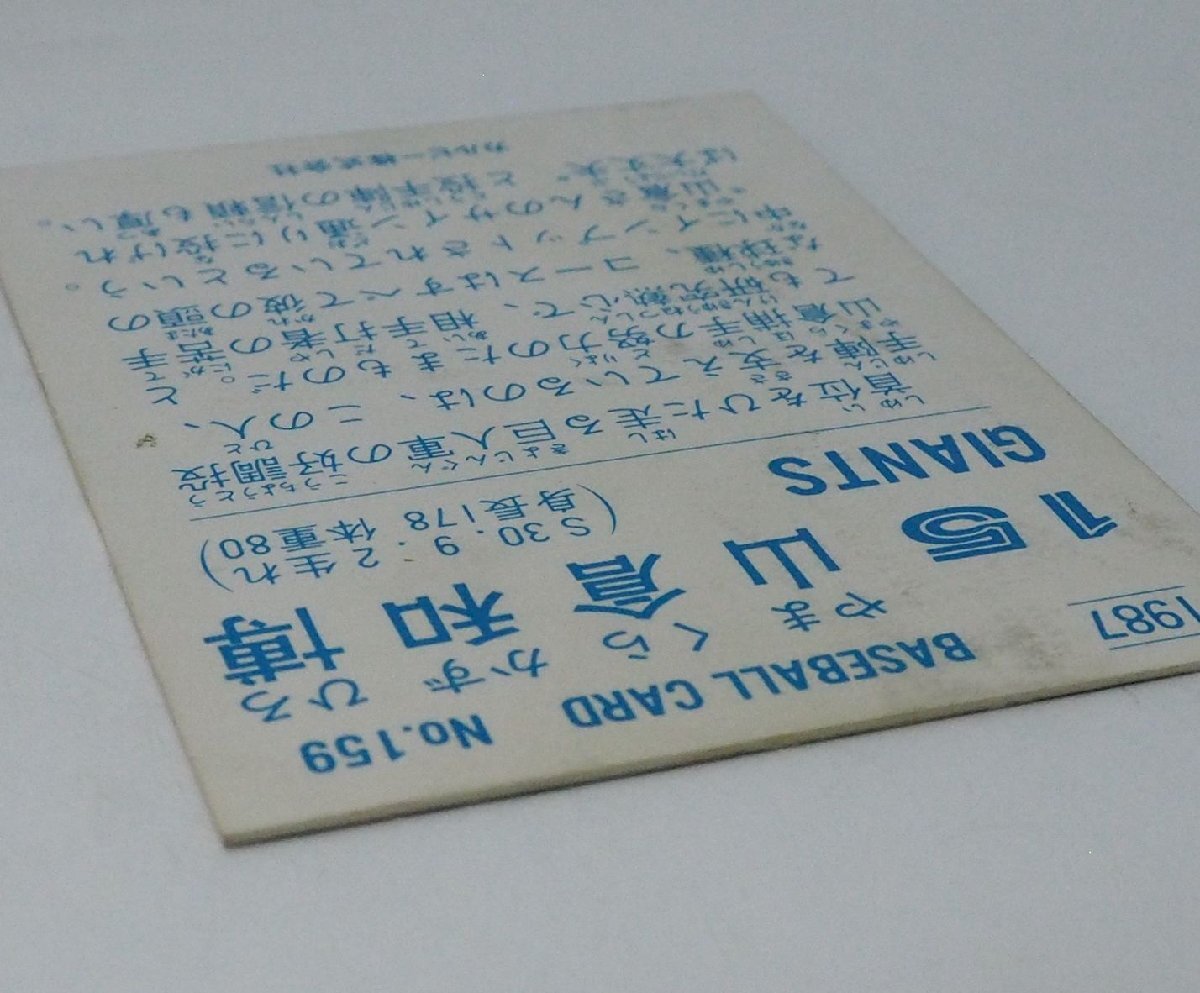 1987 BASEBALL CARD No.159
やま くら かず ひろ
15 山倉和博
GIANTS
(S30・9・2生れ)
(身長178 体重80)
首位をひた走る巨人軍の好調投
手陣を支えているのは、この人、
山倉捕手の努力のたまものだ。と
ても研究熱心で、相手打者の苦手
な球種、コースはすべて彼の頭の
中にインプットされているという。
“山倉さんのサイン通りに投げれ
ば大丈夫”と投手陣の信頼も厚い。
カルビー株式会社